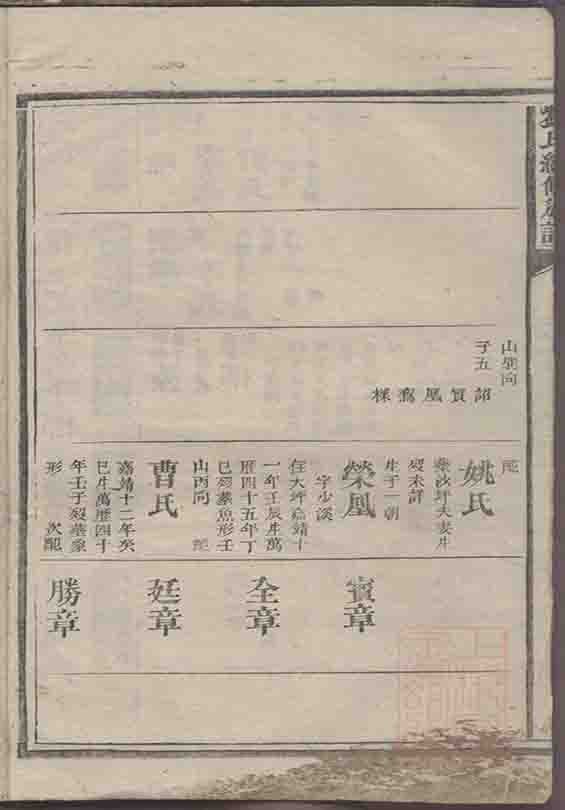 氏續修族譜
山向
子五
配
姚氏
柴沙坪夫妻生
歿未詳
生子一朝
榮凰
字少溪
住大坪嘉靖十
一年壬辰生萬
曆四十五年丁
巳歿葬魚形壬
山丙向 配
曹氏
嘉靖十二年癸
巳生萬曆四十
年壬子歿葬象
形 次配
賓章
全章
廷章
勝章